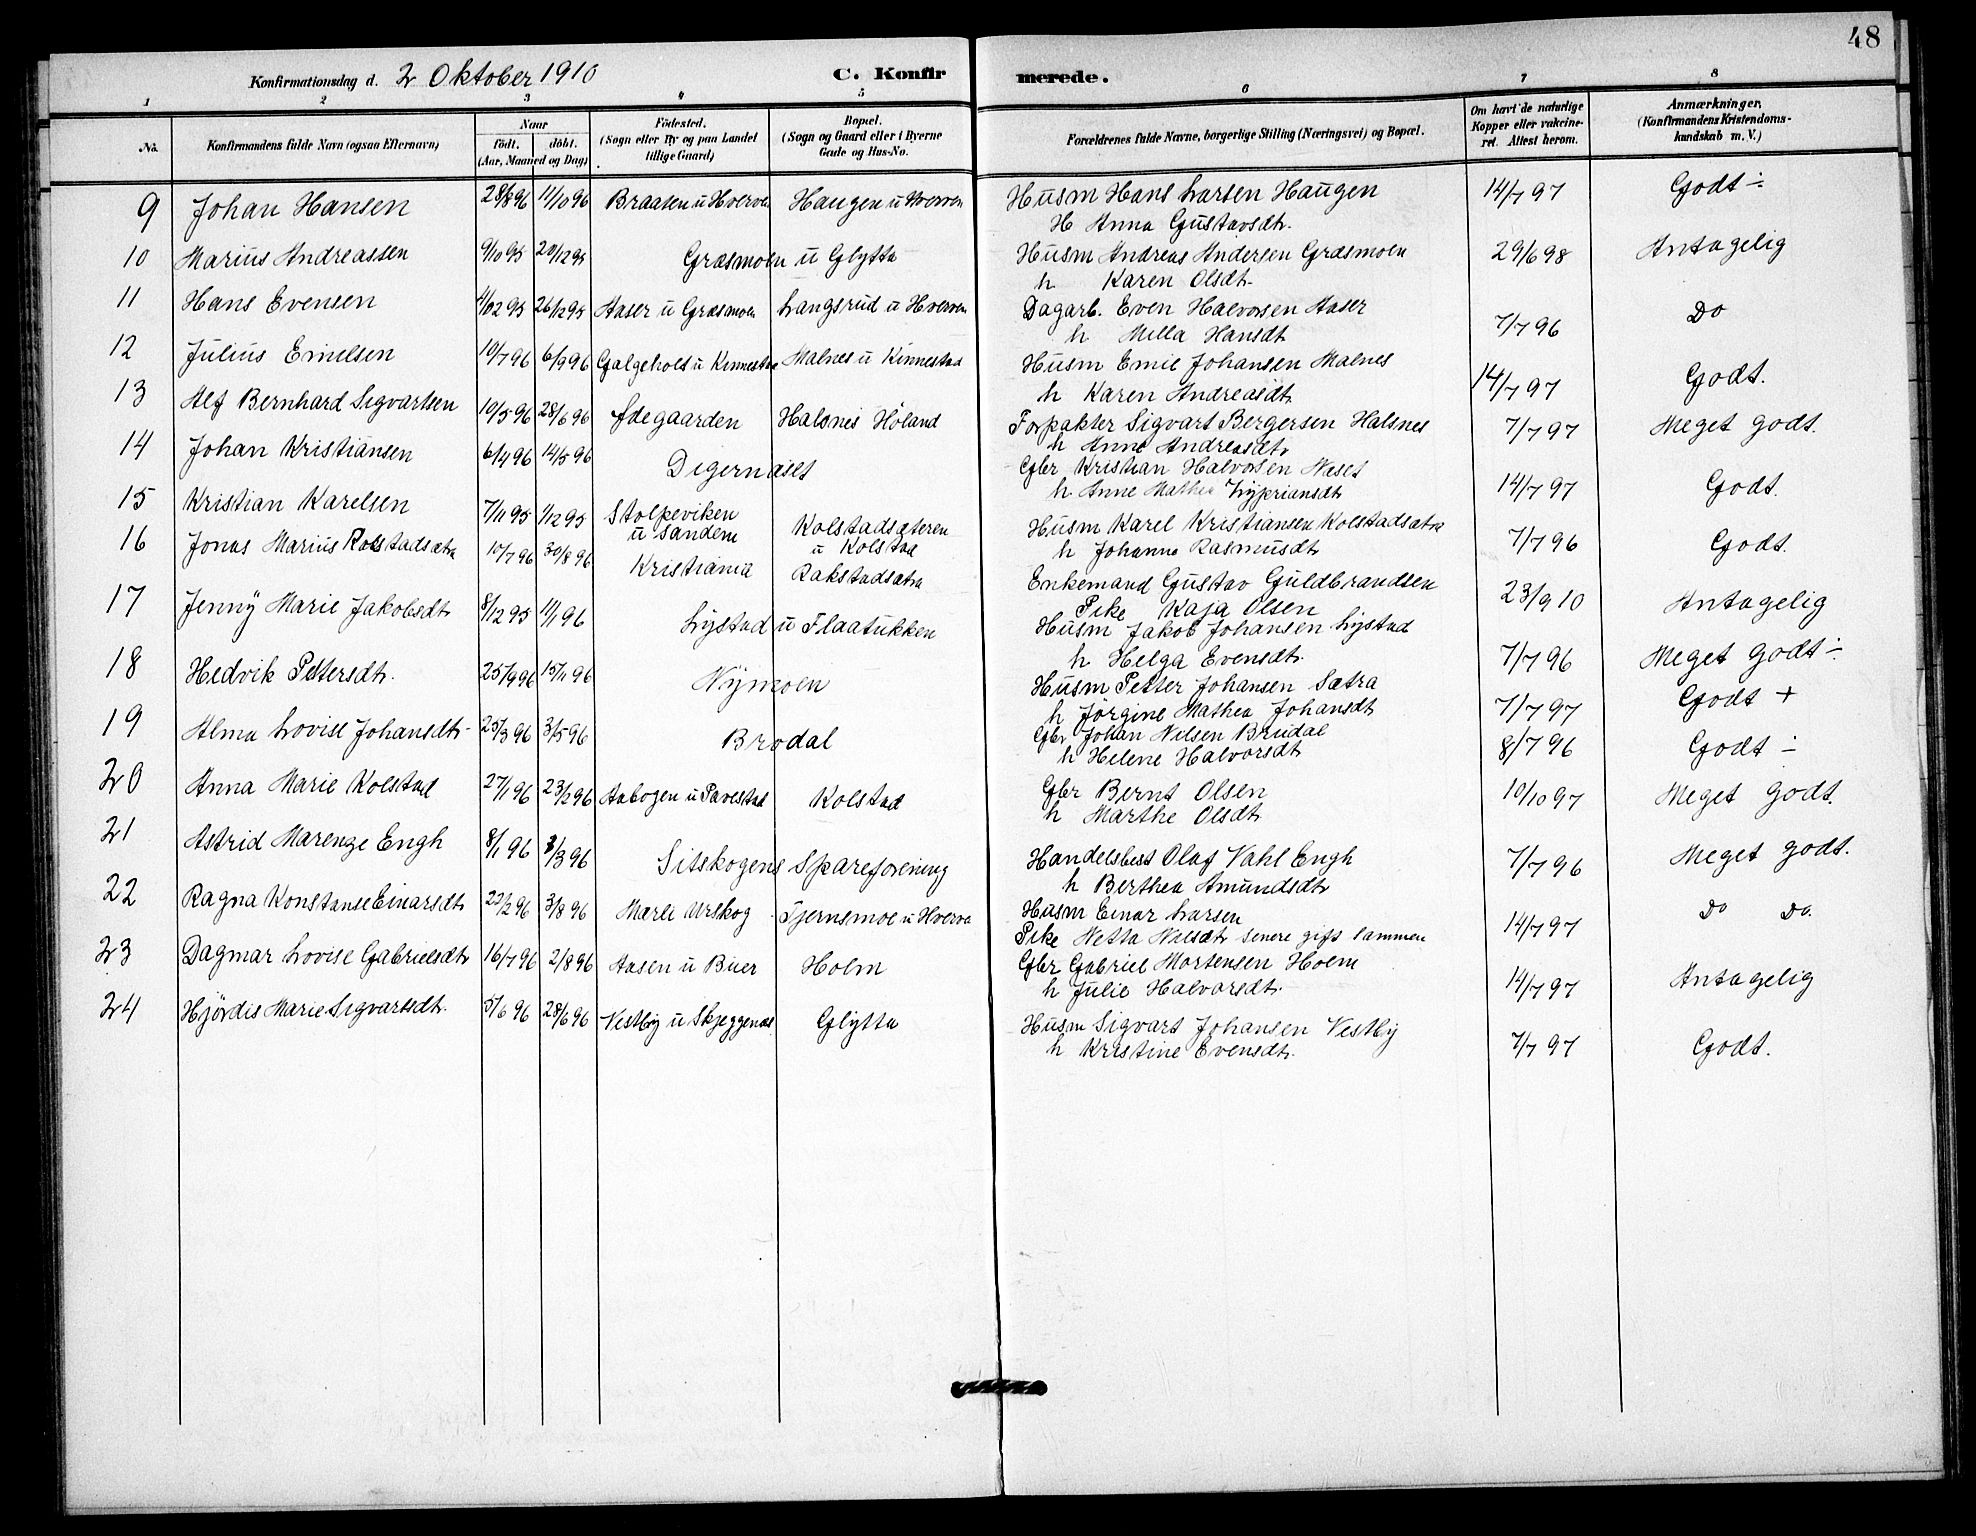 48
Konfirmationsdag d. 2 Oktober 1910 C. Konfirmerede.
1 2 3 4 5 6 7 8
No. Konfirmandens fulde Navn (ogsaa Efternavn) Naar født. døbt. (Aar, Maaned og Dag) Fødested. (Sogn eller By og paa Landet tillige Gaard) Bopæl. (Sogn og Gaard eller i Byerne Gade og Hus-No. Forældrenes fulde Navne, borgerlige Stilling (Næringsvei) og Bopæl. Om havt de naturlige Kopper eller vakcineret. Attest herom. Anmærkninger. (Konfirmandens Kristendomskundskab m. V.)
9 Johan Hansen 28/8 96 11/10 96 Braaten u Hverven Haugen u Hverven Husm Hans Larsen Haugen 14/7 97 Godt ÷
H Anna Gustavsdtr.
10 Marius Andreassen 9/10 95 20/12 95 Græsmoen u Glytta Husm Andreas Andersen Græsmoen 29/6 98 Antagelig
h Karen Olsdtr.
11 Hans Evensen 4/02 95 26/12 95 Aaser u Græsmoen Langsrud u Hverven Dagarb. Even Halvorsen Aaser 7/7 96 Do
h Milla Hansdtr
12 Julius Emilsen 10/7 96 6/9 96 Galgeholt u Kinnestad Malnes u Kinnestad Husm Emil Johansen Malnes 14/7 97 Godt.
h Karen Andreasdtr
13 Alf Bernhard Sigvartsen 10/5 96 28/6 96 Ødegaarden Halsnes Høland Forpakter Sigvart Bergersen Halsnes 7/7 97 Meget godt.
h Anne Andreasdtr
14 Johan Kristiansen 6/4 96 14/5 96 Digernæset Gbr Kristian Halvorsen Neset 14/7 97 Godt.
h Anne Mathea Lypriansdtr
15 Kristian Karelsen 7/11 95 1/12 95 Stolpeviken u Sandem Kolstadsæteren u Kolstad Husm Karel Kristiansen Kolstadsætra 7/7 96 Godt.
h Johanne Rasmusdtr
16 Jonas Marius Rakstadsætra 10/7 96 30/8 96 Kristiania Rakstadsætra Enkemand Gustav Guldbrandsen 23/9 10 Antagelig
Pike Kaja Olsen
17 Jenny Marie Jakobsdtr 8/12 95 1/1 96 Lystad u Flaatukken Husm Jakob Johansen Lystad 7/7 96 Meget godt ÷
h Helga Evensdtr.
18 Hedvik Pettersdtr. 25/9 96 15/11 96 Nymoen Husm Petter Johansen Sætra 7/7 97 Godt +
h Jørgine Mathea Johansdtr
19 Alma Lovise Johansdtr 25/3 96 3/5 96 Brødal Gbr Johan Nilsen Brudal 8/7 96 Godt ÷
h Helene Halvorsdtr
20 Anna Marie Kolstad 27/1 96 23/2 96 Aabogen u Tævestad Kolstad Gbr Bernt Olsen 10/10 97 Meget godt.
h Marthe Olsdtr
21 Astrid Marenze Engh 8/1 96 8/3 96 Sitskogens Spareforening Handelsbest Olaf Vahl Engh 7/7 96 Meget godt.
h Berthea Amundsdtr
22 Ragna Konstanse Einarsdtr 22/2 96 3/8 96 Mærli Urskog Tjernsmoe u Hverva Husm Einar Larsen 14/7 97 Do Do.
Pike Netta Nilsdtr senere gift sammen
23 Dagmar Lovise Gabrielsdtr 16/7 96 2/8 96 Aasen u Buer Holm Gbr Gabriel Mortensen Holm 14/7 97 Antagelig
h Julie Halvorsdtr.
24 Hjördis Marie Sigvartsdtr. 5/6 96 28/6 96 Vestby u Skjeggenæs Glytta Husm Sigvart Johansen Vestby 7/7 97 Godt.
h Kristine Evensdtr.